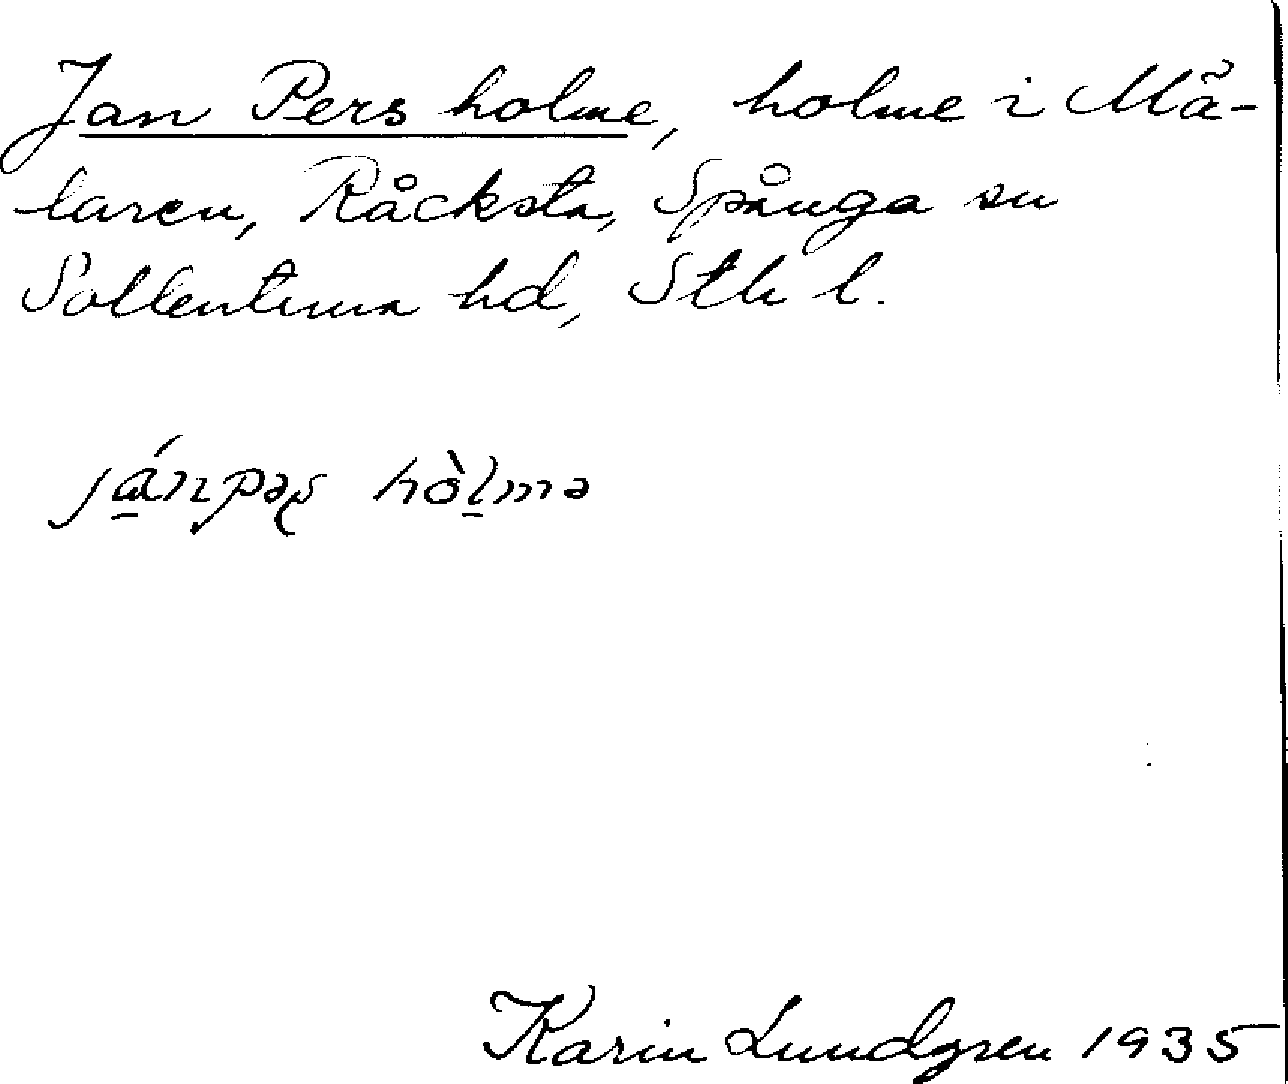 Jan Pers holme, holme i Mä-
laren, Råcksta, Spånga sn
Sollentuna hd, Sth l.
ja̱ńpəʂ hòḻmə
Karin Lundgren 1935